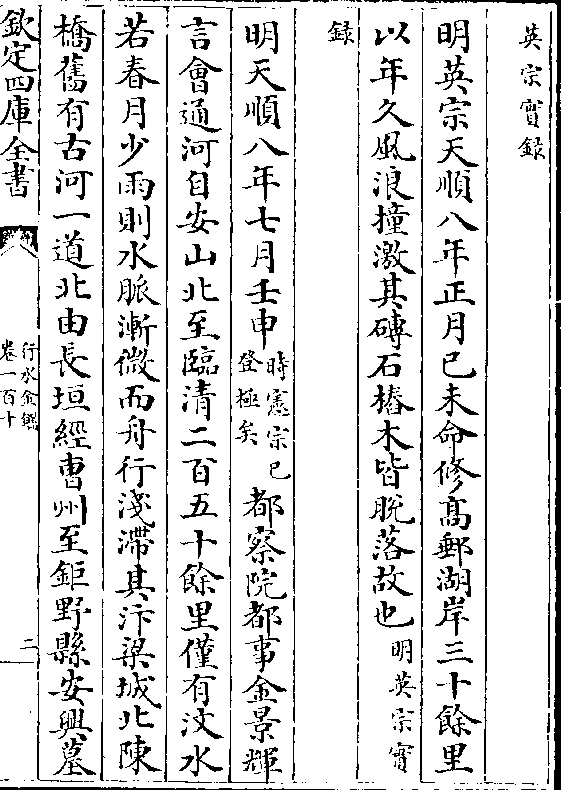 英宗實録
明英宗天順八年正月己未命修髙郵湖岸三十餘里
以年久風浪撞激其磚石樁木皆脫落故也明英宗實
録
明天順八年七月壬申時憲宗已登極矣都察院都事金景輝
言會通河自安山北至臨清二百五十餘里僅有汶水
若春月少雨則水脈漸微而舟行淺滯其汴梁城北陳
橋舊有古河一道北由長垣經曹州至鉅野縣安興墓
欽定四庫全書
行水金鑑
卷一百十
二